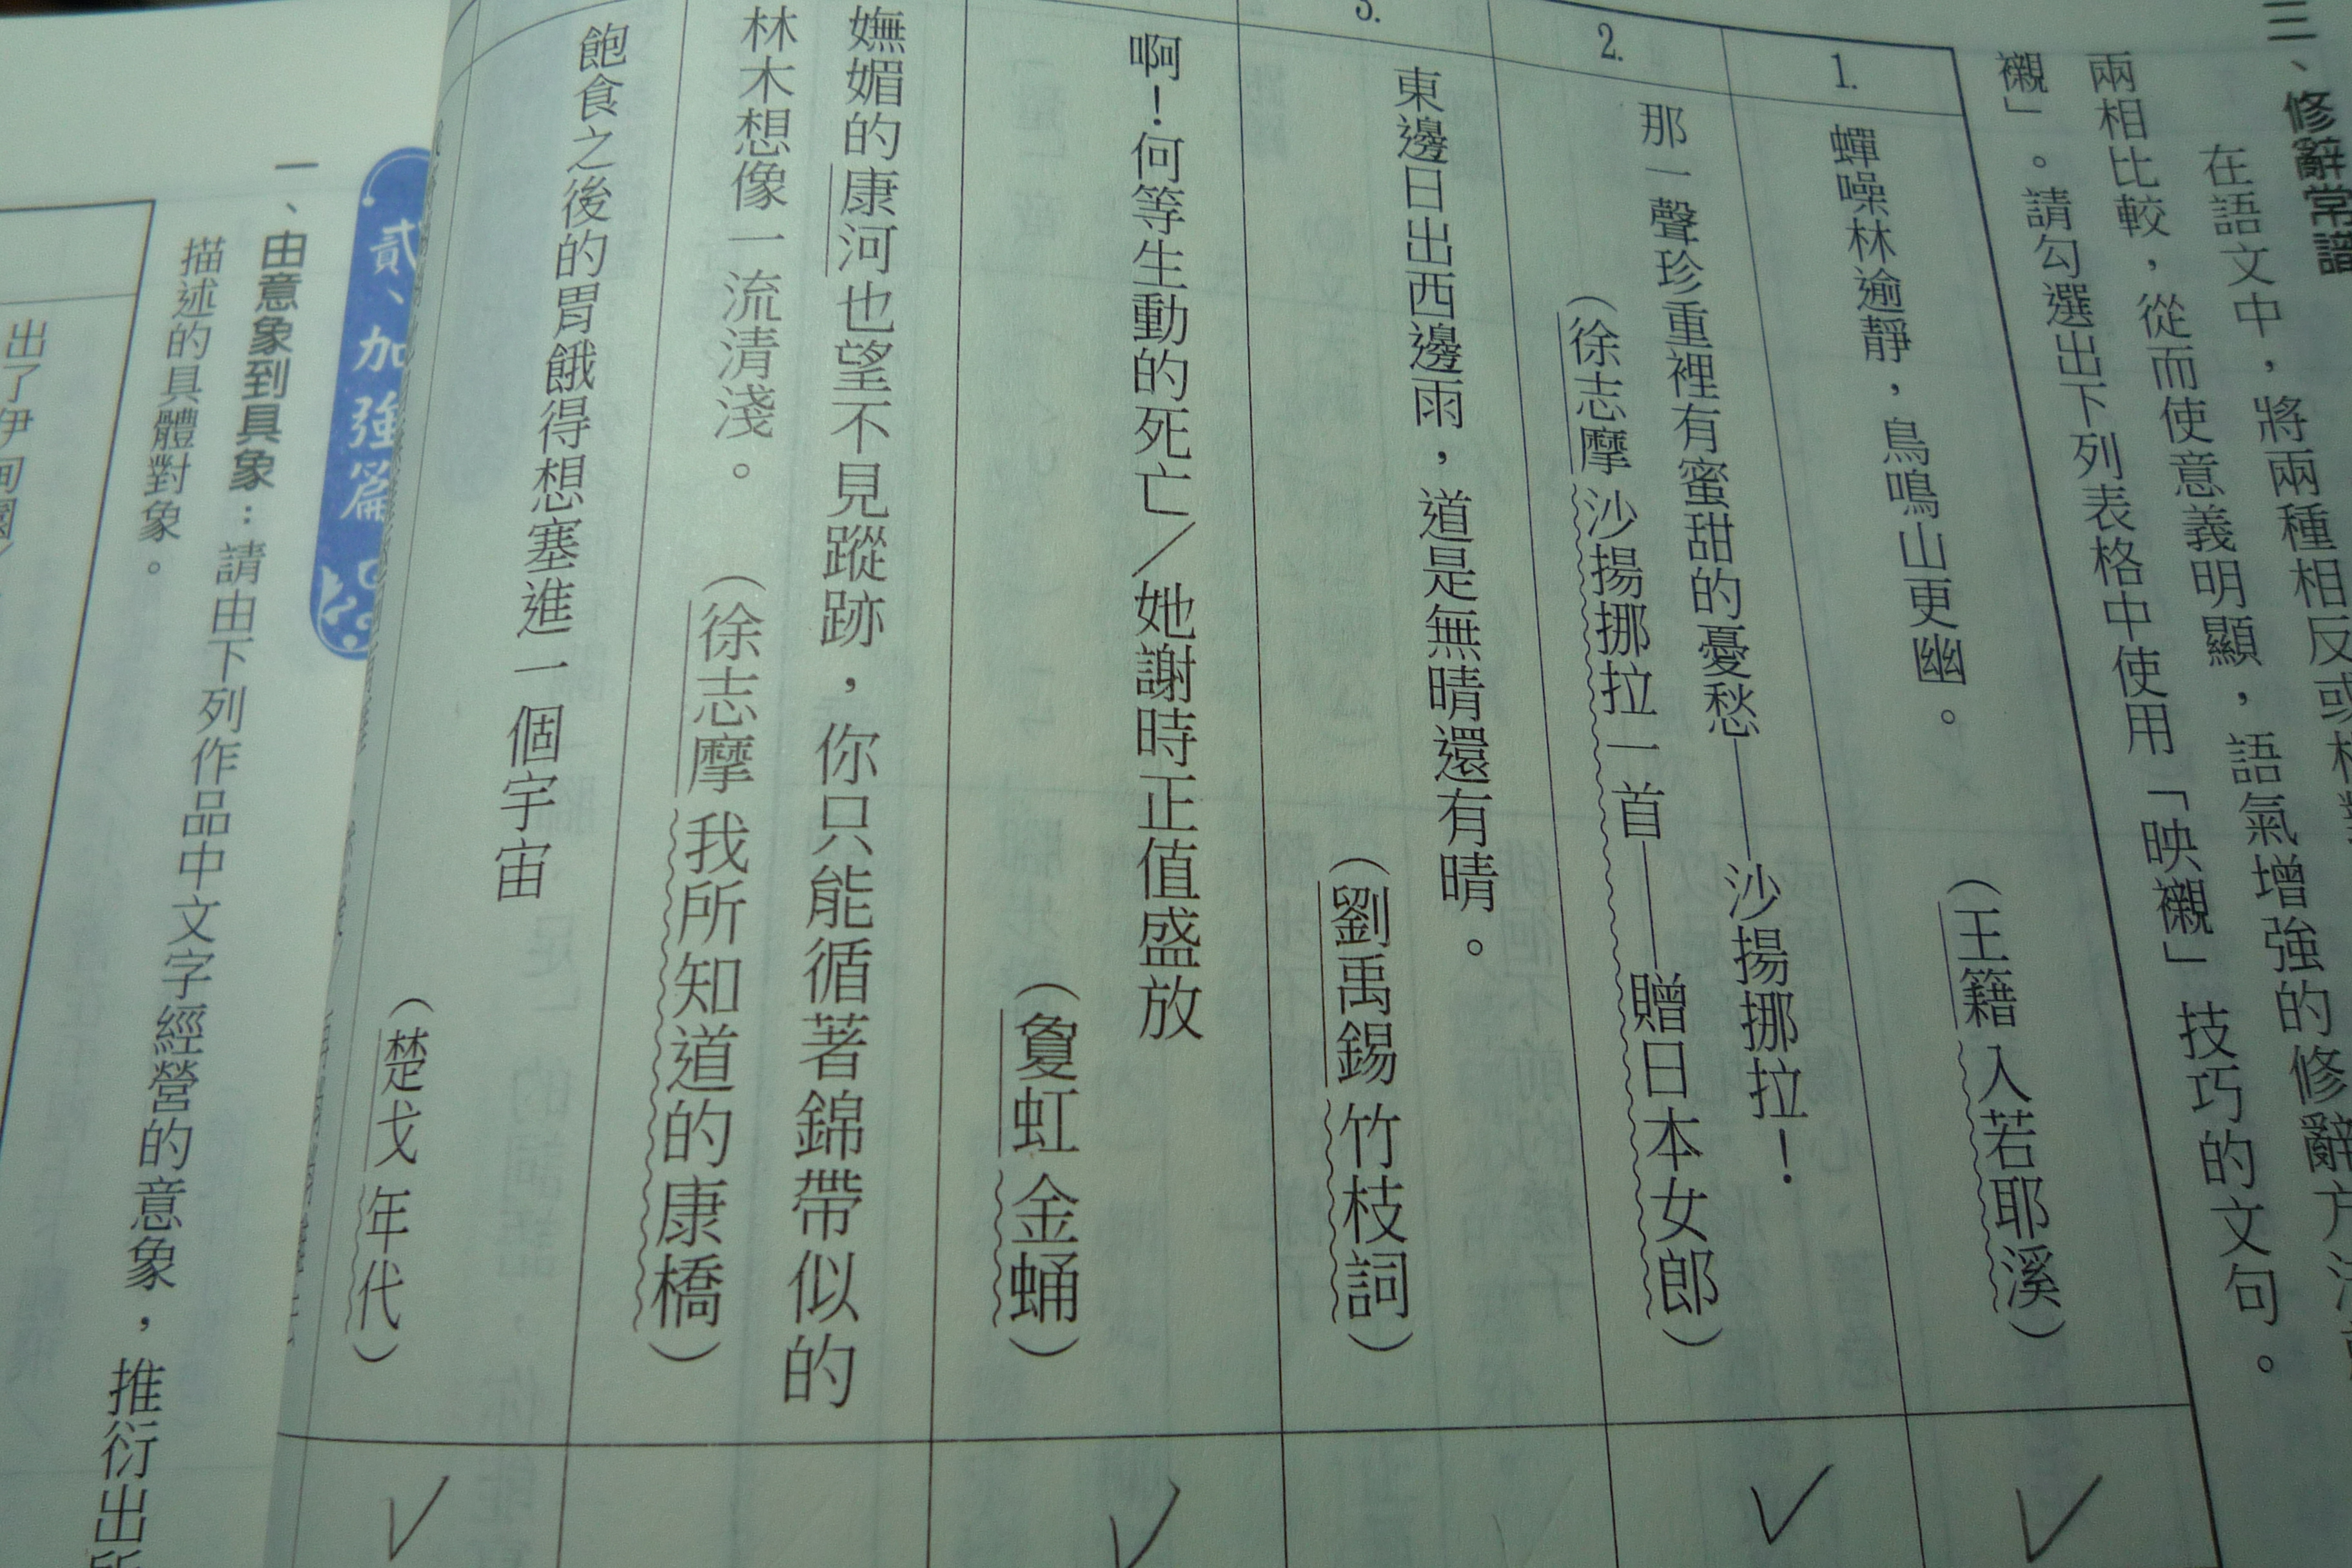 三、修辭常識
在語文中，將兩種相反或
兩相比較，從而使意義明顯，語氣增強的修辭方法
襯」。請勾選出下列表格中使用「映襯」技巧的文句。
1.
蟬噪林逾靜，鳥鳴山更幽。
（王籍 入若耶溪）
2.
那一聲珍重裡有蜜甜的憂愁——沙揚挪拉！
（徐志摩 沙揚挪拉一首——贈日本女郎）
3.
東邊日出西邊雨，道是無晴還有晴。
（劉禹錫 竹枝詞）
啊！何等生動的死亡／她謝時正值盛放
（敻虹 金蛹）
嫵媚的康河也望不見蹤跡，你只能循著錦帶似的
林木想像一流清淺。（徐志摩 我所知道的康橋）
飽食之後的胃餓得想塞進一個宇宙
（楚戈 年代）
貳、加強篇
一、由意象到具象：請由下列作品中文字經營的意象，推衍出所
描述的具體對象。
出了伊甸園／